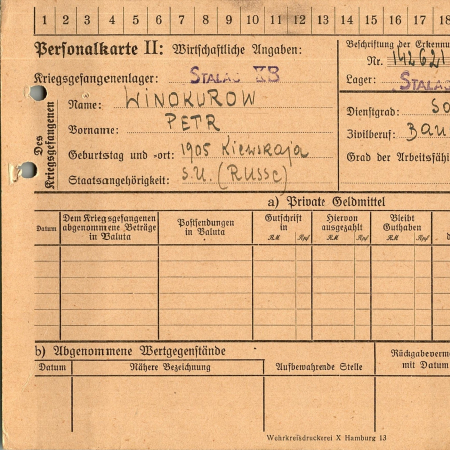 1 2 3 4 5 6 7 8 9 10 11 12 13 14 15 16 17 18
Personalkarte II: Wirtschaftliche Angaben:
Beschriftung der Erkennu
Nr. 142621
Kriegsgefangenenlager: STALAG XB
Lager: STALAG
Des Kriegsgefangenen
Name: WINOKUROW
Vorname: PETR
Dienstgrad: So
Geburtstag und -ort: 1905 Kiewskaja
Zivilberuf: Bau
Staatsangehörigkeit: S.U. (RUSSE)
Grad der Arbeitsfähi
a) Private Geldmittel
Datum
Dem Kriegsgefangenen
abgenommene Beträge
in Valuta
Postsendungen
in Valuta
Gutschrift
in
RM Rpf
Hiervon
ausgezahlt
RM Rpf
Bleibt
Guthaben
RM Rpf
d
b) Abgenommene Wertgegenstände
Datum
Nähere Bezeichnung
Aufbewahrende Stelle
Rückgabeverme
mit Datum
Wehrkreisdruckerei X Hamburg 13